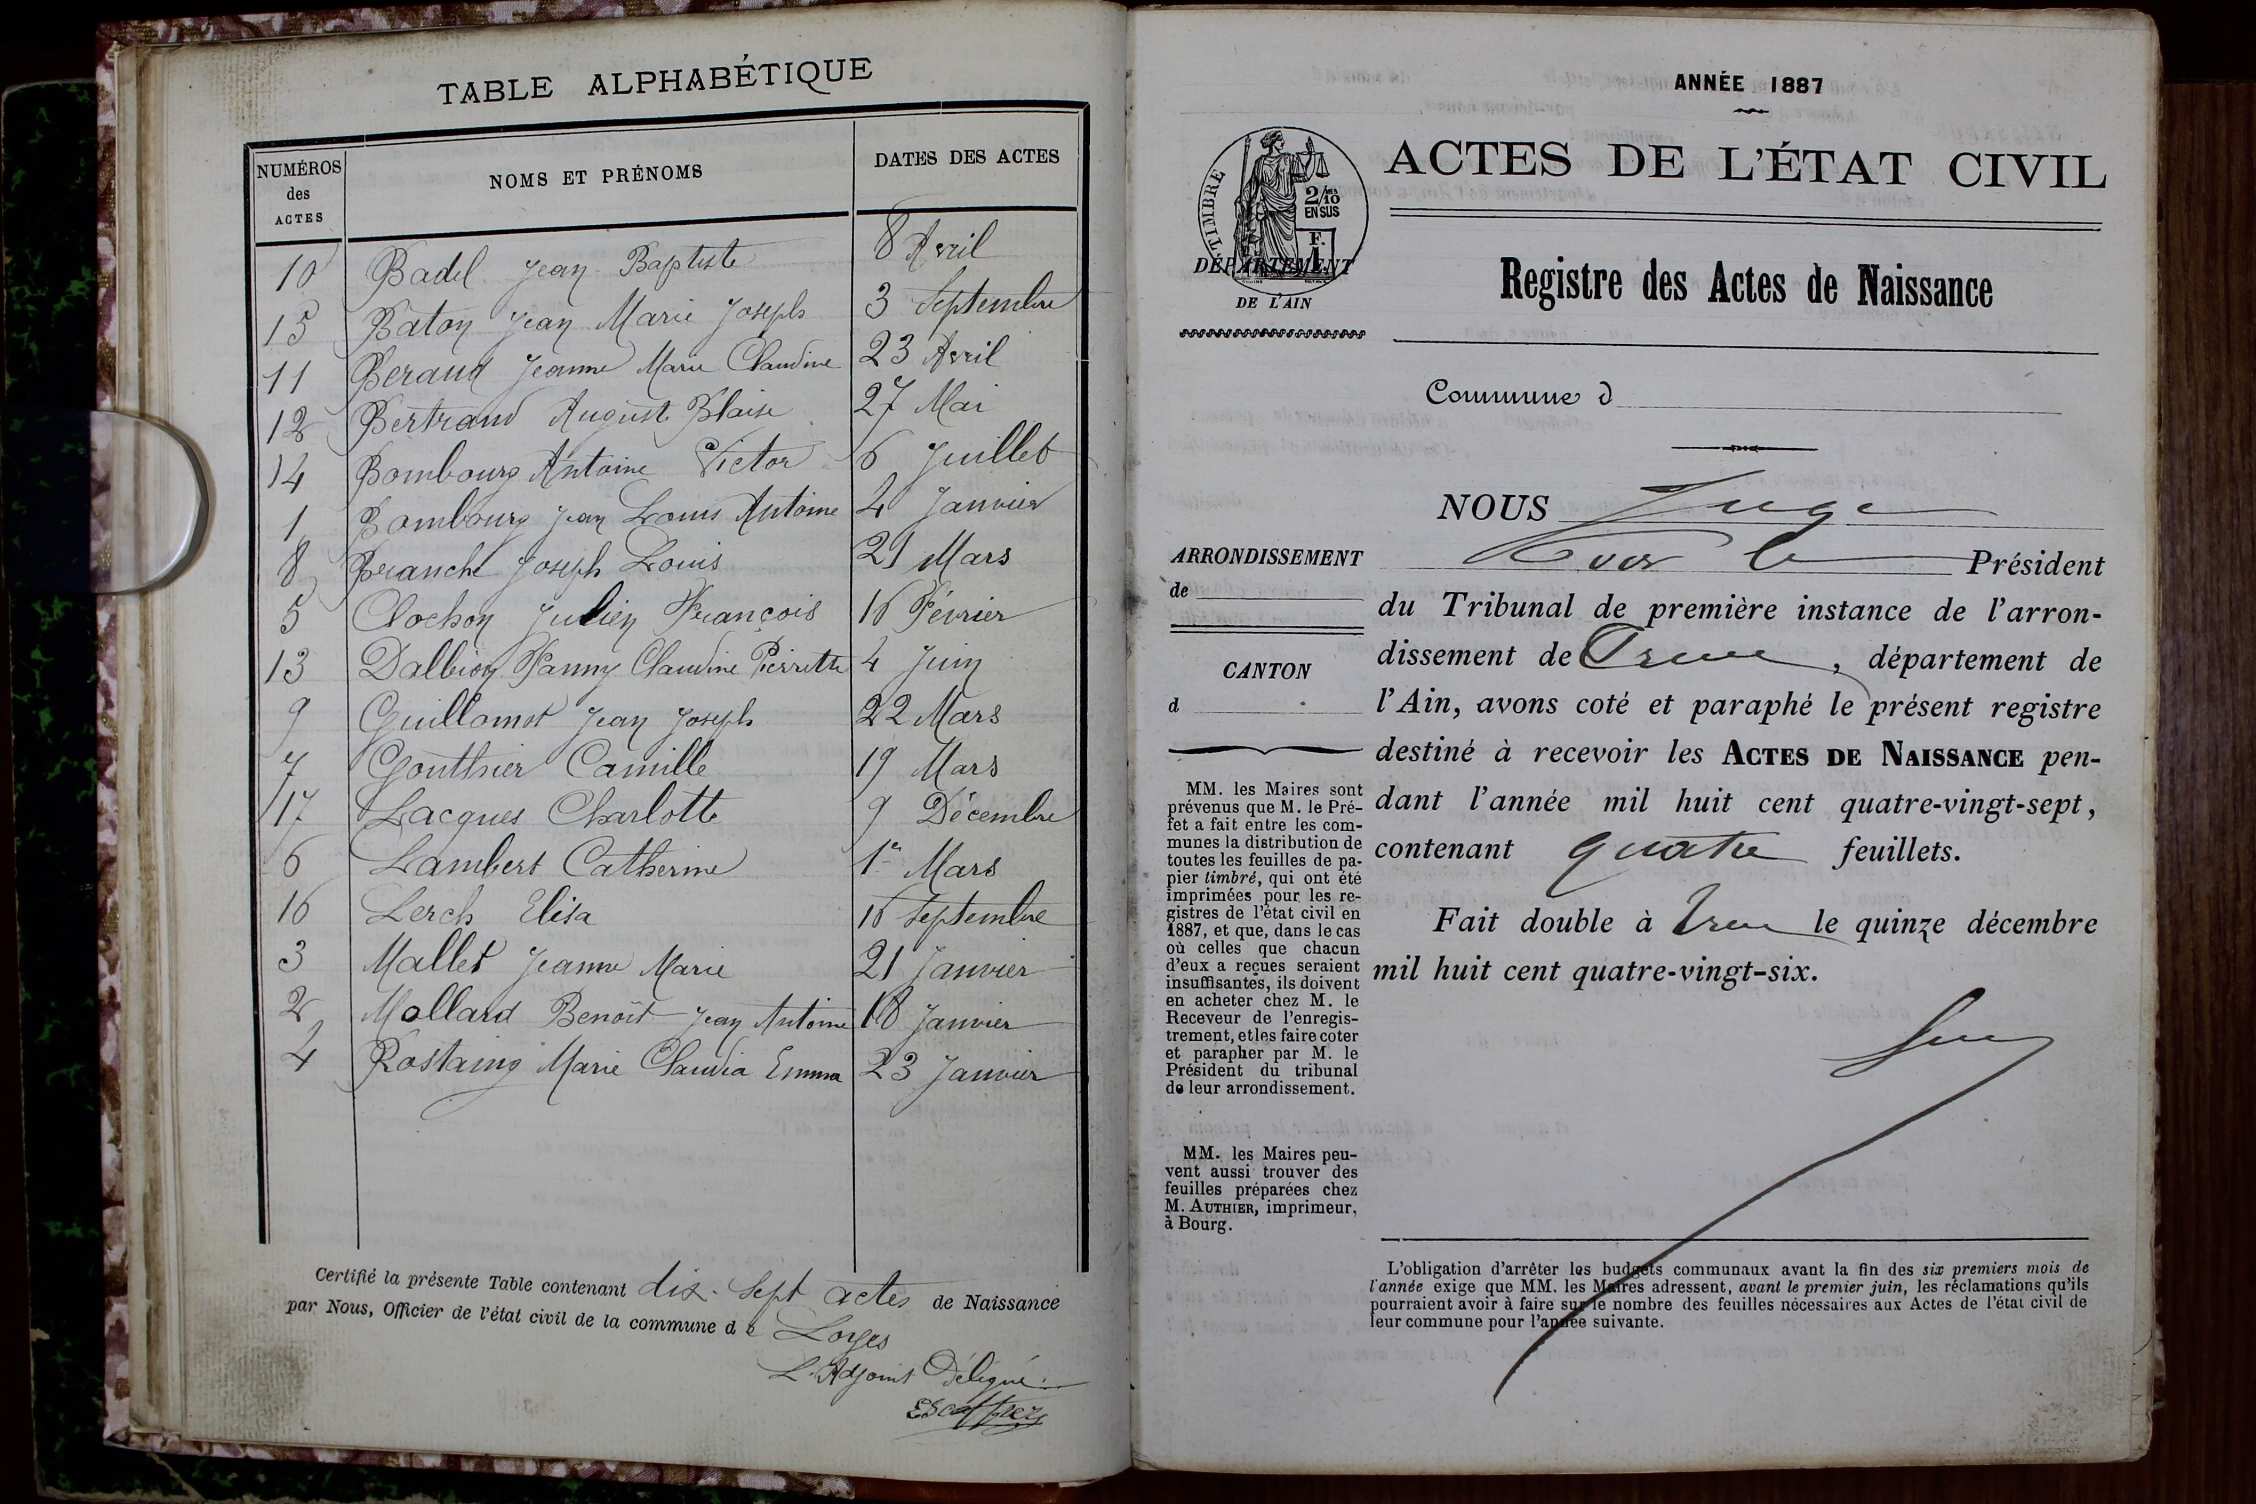 TABLE ALPHABÉTIQUE
NUMÉROS des ACTES NOMS ET PRÉNOMS DATES DES ACTES
10 Badel Jean Baptiste 8 Avril
15 Baton Jean Marie Joseph 3 Septembre
11 Beraud Jeanne Marie Claudine 23 Avril
12 Bertrand August Blaise 27 Mai
14 Bombourg Antoine Victor 6 Juillet
1 Bombourg Jean Louis Antoine 4 Janvier
8 Branche Joseph Louis 21 Mars
5 Clochon Julien François 16 Février
13 Dalbion Fanny Claudine Pierrette 4 Juin
9 Guillomot Jean Joseph 22 Mars
7 Gouthier Camille 19 Mars
17 Lacques Charlotte 9 Décembre
6 Lambert Catherine 1er Mars
16 Lerch Elisa 16 Septembre
3 Mallet Jeanne Marie 21 Janvier
2 Mollard Benoît Jean Antoine 18 Janvier
4 Rostaing Marie Claudia Emma 23 Janvier
Certifié la présente Table contenant dix-sept actes de Naissance
par Nous, Officier de l'état civil de la commune de Loyes
L'Adjoint Délégué
Escoffier
ANNÉE 1887
ACTES DE L'ÉTAT CIVIL
TIMBRE
2/10
EN SUS
F.
1
DÉPARTEMENT
DE L'AIN
Registre des Actes de Naissance
Commune d
NOUS Juge
Président
du Tribunal de première instance de l'arron-
dissement de , département de
l'Ain, avons coté et paraphé le présent registre
destiné à recevoir les ACTES DE NAISSANCE pen-
dant l'année mil huit cent quatre-vingt-sept,
contenant quatre feuillets.
Fait double à le quinze décembre
mil huit cent quatre-vingt-six.
ARRONDISSEMENT
de
CANTON
d
MM. les Maires sont
prévenus que M. le Pré-
fet a fait entre les com-
munes la distribution de
toutes les feuilles de pa-
pier timbré, qui ont été
imprimées pour les re-
gistres de l'état civil en
1887, et que, dans le cas
où celles que chacun
d'eux a reçues seraient
insuffisantes, ils doivent
en acheter chez M. le
Receveur de l'enregis-
trement, et les faire coter
et parapher par M. le
Président du tribunal
de leur arrondissement.
MM. les Maires peu-
vent aussi trouver des
feuilles préparées chez
M. AUTHIER, imprimeur,
à Bourg.
L'obligation d'arrêter les budgets communaux avant la fin des six premiers mois de
l'année exige que MM. les Maires adressent, avant le premier juin, les réclamations qu'ils
pourraient avoir à faire sur le nombre des feuilles nécessaires aux Actes de l'état civil de
leur commune pour l'année suivante.